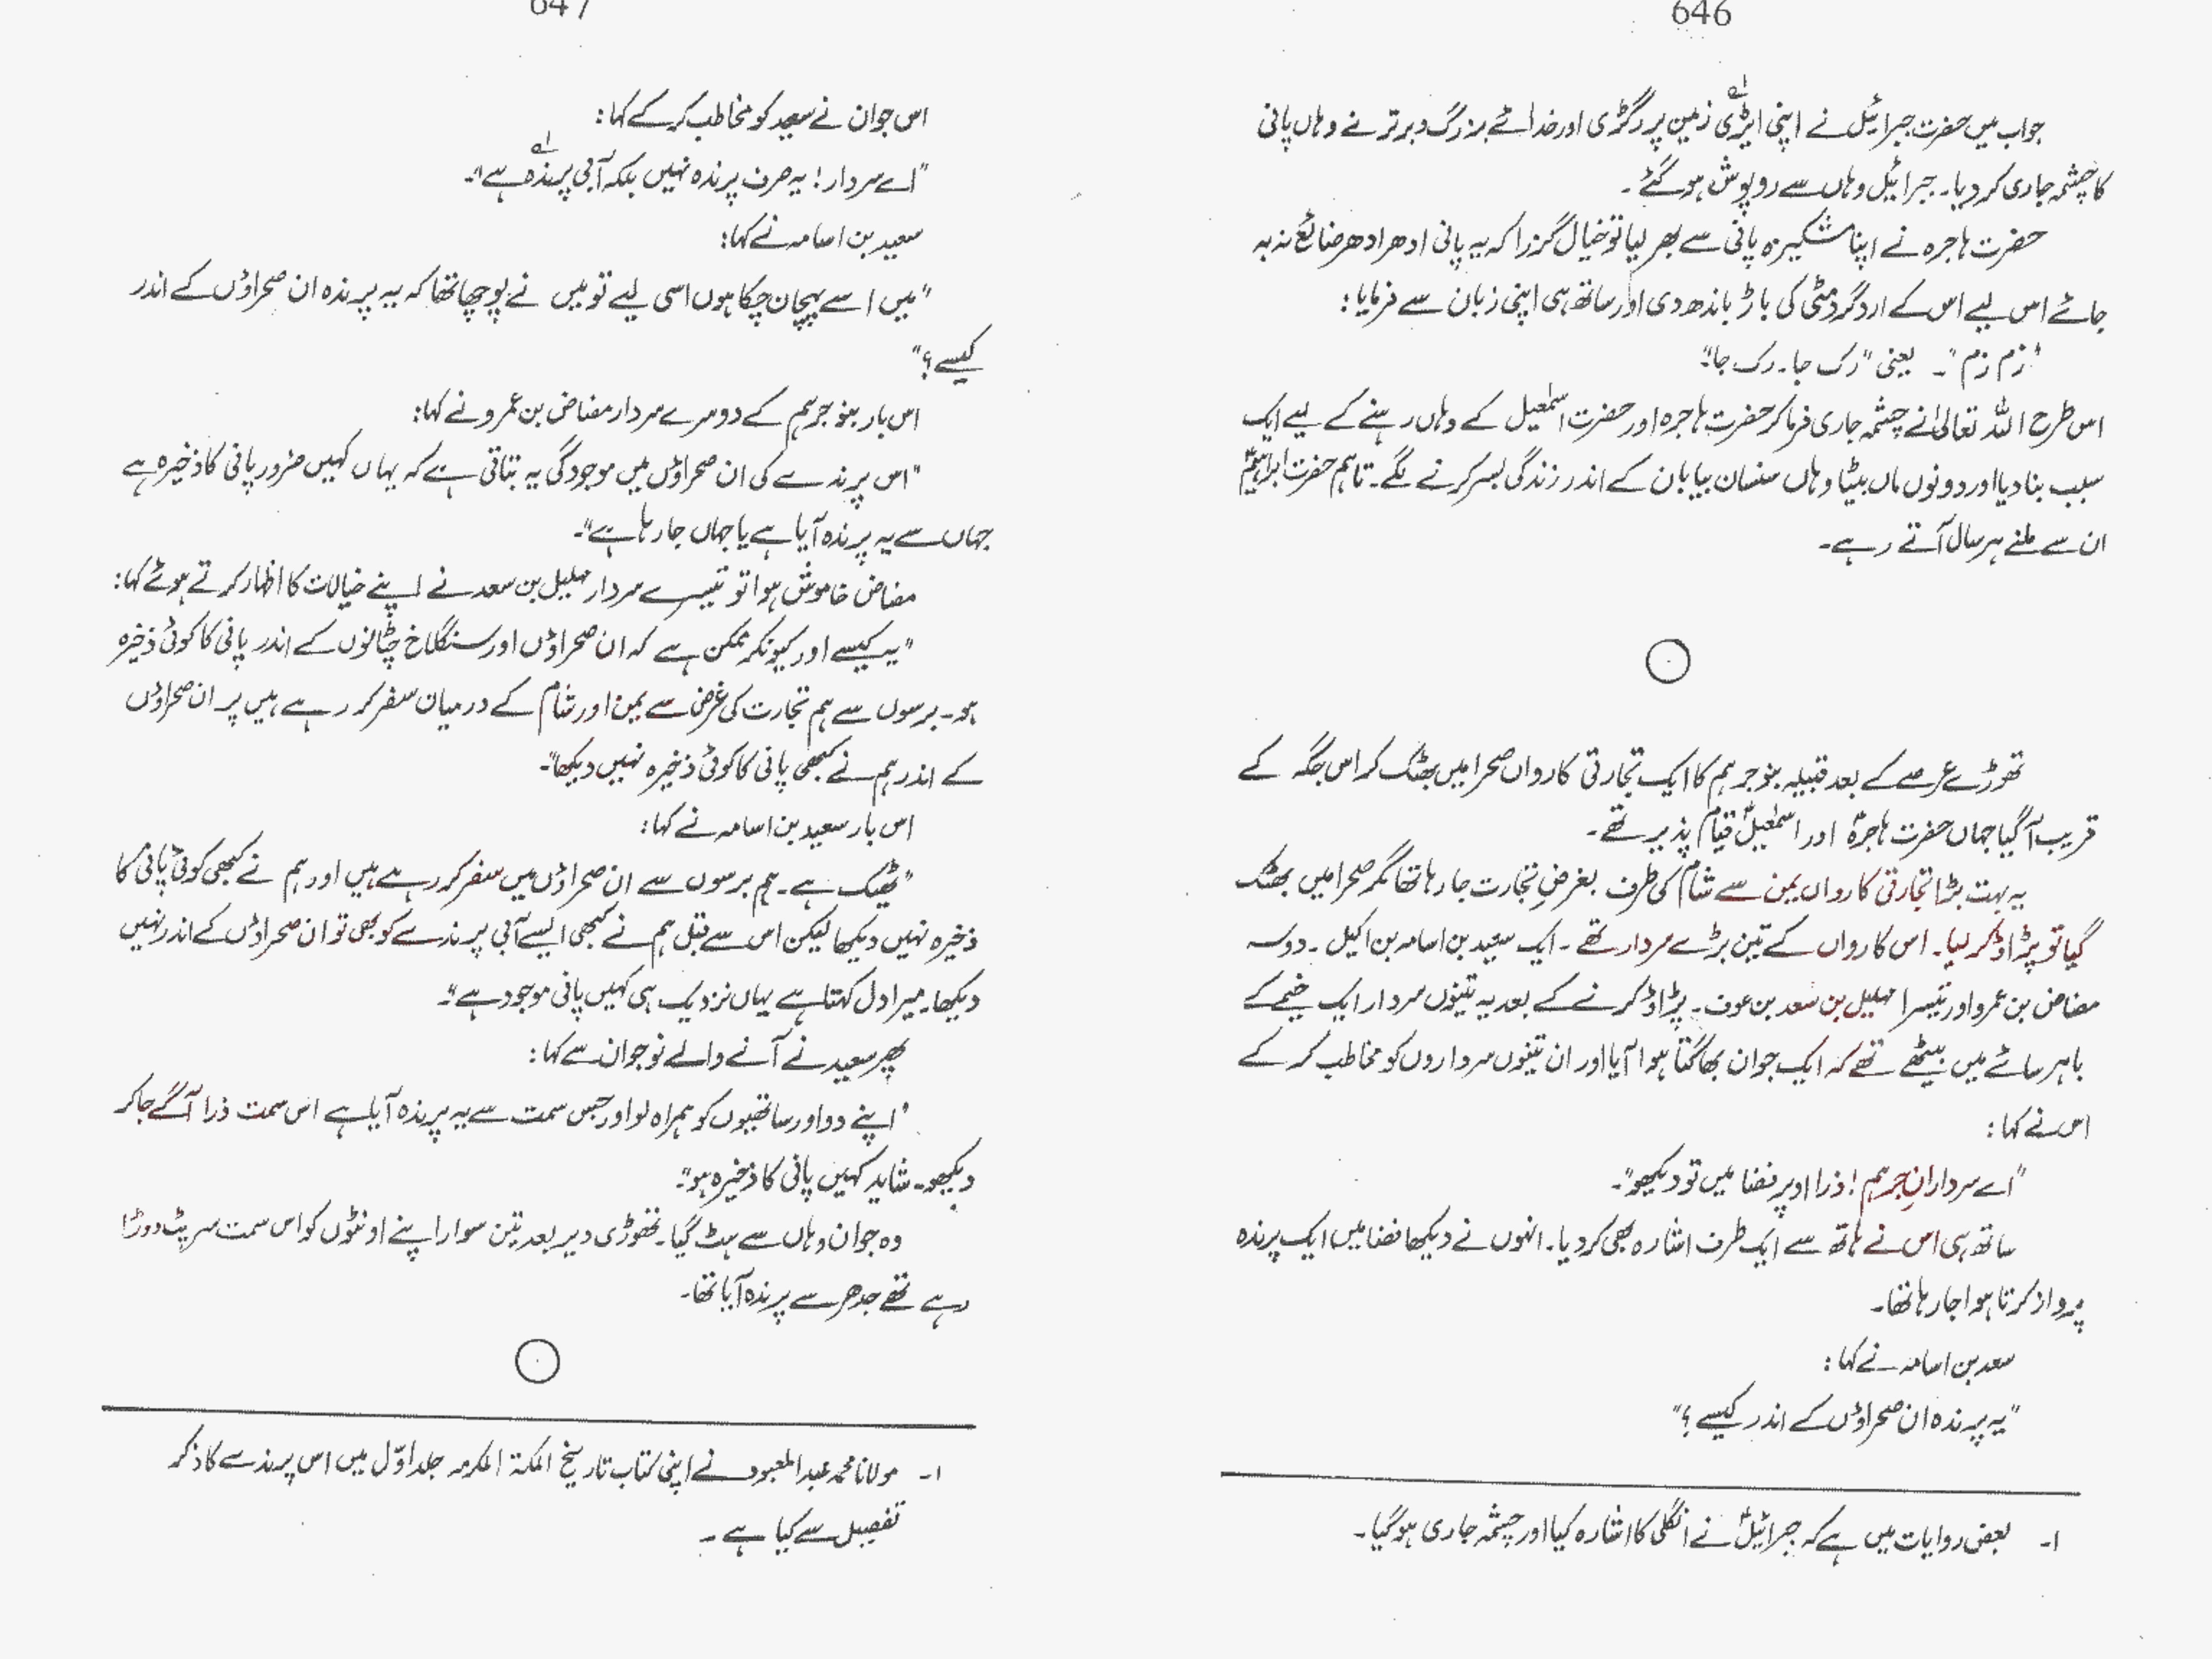 646
جواب میں حضرت جبرائیل نے اپنی ایڑی لہ زمین پر رگڑی اور خدائے بزرگ و برتر نے وہاں پانی
کا چشمہ جاری کر دیا۔ جبرائیل وہاں سے روپوش ہو گئے۔
حضرت ہاجرہ نے اپنا مشکیزہ پانی سے بھر لیا تو خیال گزرا کہ یہ پانی ادھر ادھر ضائع نہ بہہ
جائے اس لیے اس کے ارد گرد مٹی کی باڑ باندھ دی اور ساتھ ہی اپنی زبان سے فرمایا:
"زم زم"۔ یعنی "رک جا۔ رک جا"۔
اس طرح اللہ تعالیٰ نے چشمہ جاری فرما کر حضرت ہاجرہ اور حضرت اسمٰعیل کے وہاں رہنے کے لیے ایک
سبب بنا دیا اور دونوں ماں بیٹا وہاں سنسان بیابان کے اندر زندگی بسر کرنے لگے۔ تاہم حضرت ابراہیمؑ
ان سے ملنے ہر سال آتے رہے۔
تھوڑے عرصے کے بعد قبیلہ بنو جرہم کا ایک تجارتی کارواں صحرا میں بھٹک کر اس جگہ کے
قریب آ گیا جہاں حضرت ہاجرہؑ اور اسمٰعیلؑ قیام پذیر تھے۔
یہ بہت بڑا تجارتی کارواں یمن سے شام کی طرف بغرضِ تجارت جا رہا تھا مگر صحرا میں بھٹک
گیا تو پڑاؤ کر لیا۔ اس کارواں کے تین بڑے سردار تھے۔ ایک سعید بن اسامہ بن اکیل۔ دوسہ
مضاض بن عمرو اور تیسرا مہلیل بن سعد بن عوف۔ پڑاؤ کرنے کے بعد یہ تینوں سردار ایک خیمے کے
باہر سائے میں بیٹھے تھے کہ ایک جوان بھاگتا ہوا آیا اور ان تینوں سرداروں کو مخاطب کر کے
اس نے کہا:
"اے سردارانِ جرہم! ذرا اوپر فضا میں تو دیکھو"۔
ساتھ ہی اس نے ہاتھ سے ایک طرف اشارہ بھی کر دیا۔ انہوں نے دیکھا فضا میں ایک پرندہ
پرواز کرتا ہوا جا رہا تھا۔
سعد بن اسامہ نے کہا:
"یہ پرندہ ان صحراؤں کے اندر کیسے؟"
۱۔ بعض روایات میں ہے کہ جبرائیلؑ نے انگلی کا اشارہ کیا اور چشمہ جاری ہو گیا۔
647
اس جوان نے سعید کو مخاطب کر کے کہا:
"اے سردار! یہ صرف پرندہ نہیں بلکہ آبی پرندہ لہ ہے"۔
سعید بن اسامہ نے کہا:
"میں اسے پہچان چکا ہوں اسی لیے تو میں نے پوچھا تھا کہ یہ پرندہ ان صحراؤں کے اندر
کیسے؟"
اس بار بنو جرہم کے دوسرے سردار مضاض بن عمرو نے کہا:
"اس پرندے کی ان صحراؤں میں موجودگی یہ بتاتی ہے کہ یہاں کہیں ضرور پانی کا ذخیرہ ہے
جہاں سے یہ پرندہ آیا ہے یا جہاں جا رہا ہے"۔
مضاض خاموش ہوا تو تیسرے سردار مہلیل بن سعد نے اپنے خیالات کا اظہار کرتے ہوئے کہا:
"یہ کیسے اور کیونکر ممکن ہے کہ ان صحراؤں اور سنگلاخ چٹانوں کے اندر پانی کا کوئی ذخیرہ
ہو۔ برسوں سے ہم تجارت کی غرض سے یمن اور شام کے درمیان سفر کر رہے ہیں پر ان صحراؤں
کے اندر ہم نے کبھی پانی کا کوئی ذخیرہ نہیں دیکھا"۔
اس بار سعید بن اسامہ نے کہا:
"ٹھیک ہے۔ ہم برسوں سے ان صحراؤں میں سفر کر رہے ہیں اور ہم نے کبھی کوئی پانی کا
ذخیرہ نہیں دیکھا لیکن اس سے قبل ہم نے کبھی ایسے آبی پرندے کو بھی تو ان صحراؤں کے اندر نہیں
دیکھا۔ میرا دل کہتا ہے یہاں نزدیک ہی کہیں پانی موجود ہے"۔
پھر سعید نے آنے والے نوجوان سے کہا:
"اپنے دو اور ساتھیوں کو ہمراہ لو اور جس سمت سے یہ پرندہ آیا ہے اس سمت ذرا آگے جا کر
دیکھو۔ شاید کہیں پانی کا ذخیرہ ہو"۔
وہ جوان وہاں سے ہٹ گیا۔ تھوڑی دیر بعد تین سوار اپنے اونٹوں کو اس سمت سرپٹ دوڑا
رہے تھے جدھر سے پرندہ آیا تھا۔
۱۔ مولانا محمد عبدالمعبود نے اپنی کتاب تاریخ المکۃ المکرمہ جلد اوّل میں اس پرندے کا ذکر
تفصیل سے کیا ہے۔